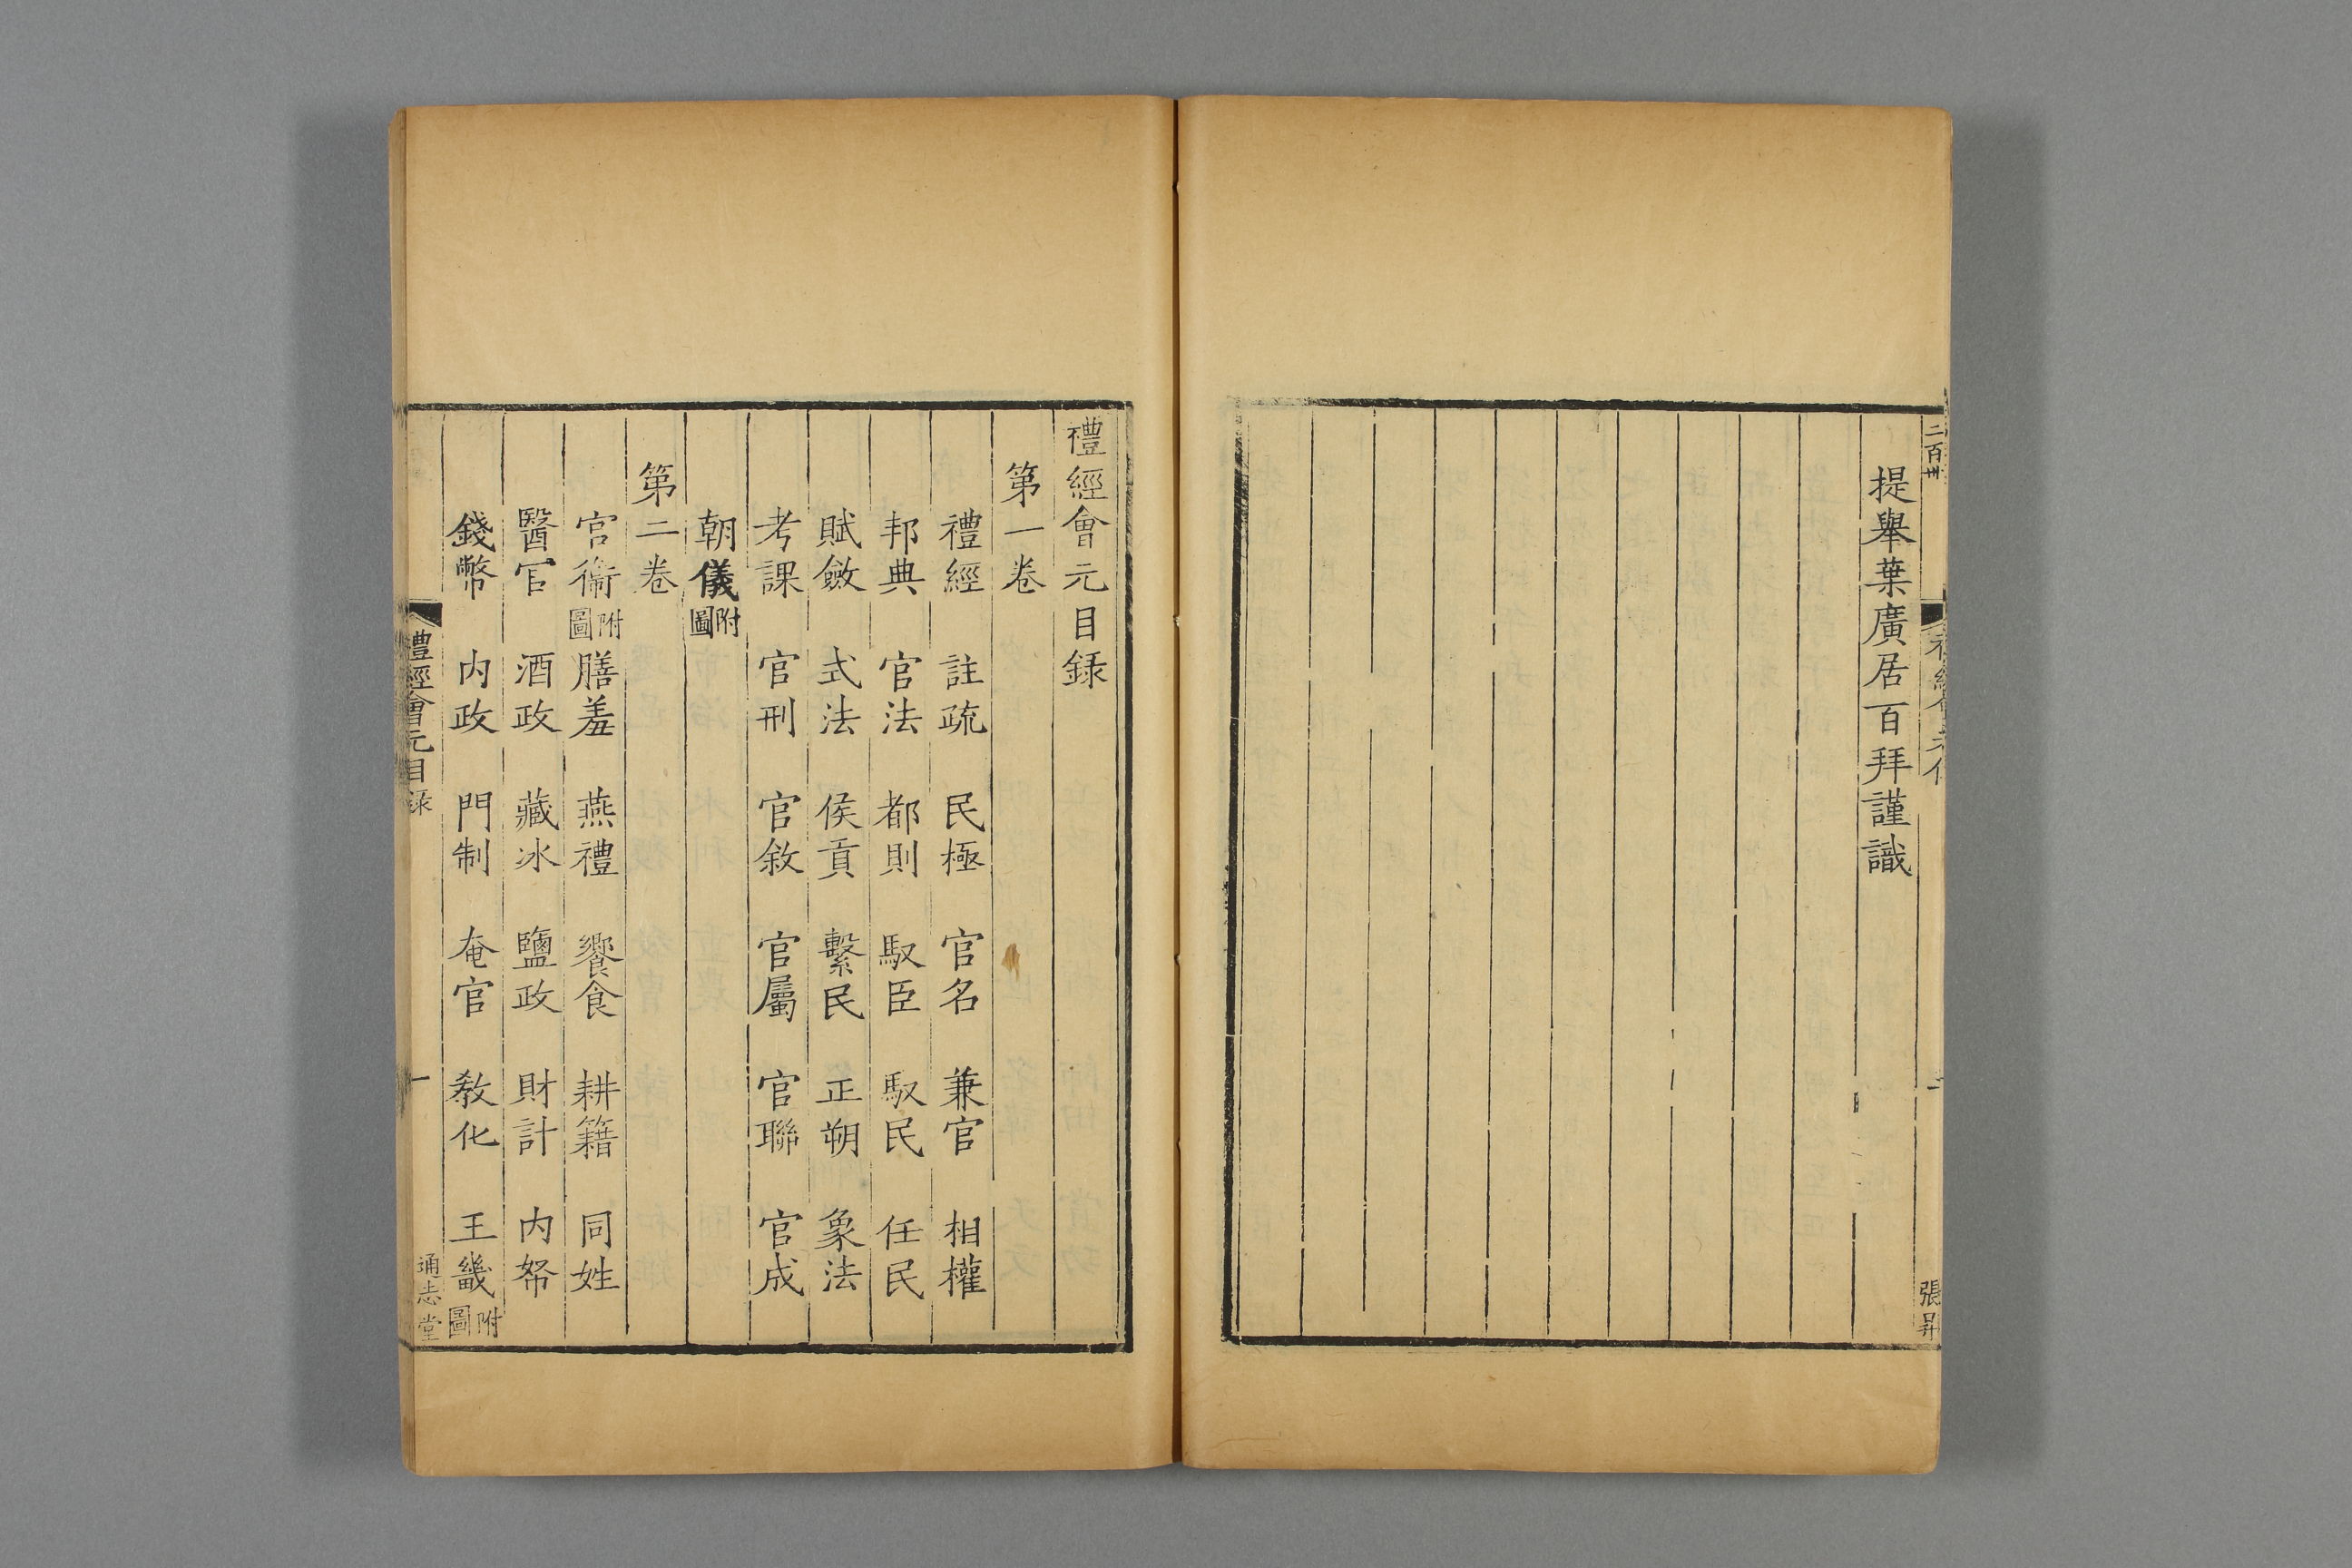 二百卅
提舉葉廣居百拜謹識
二
張昇
禮經會元目録
第一卷
禮經 註疏 民極 官名 兼官 相權
邦典 官法 都則 馭臣 馭民 任民
賦斂 式法 侯貢 繫民 正朔 象法
考課 官刑 官敘 官屬 官聯 官成
朝儀附圖
第二卷
官衞附圖 膳羞 燕禮 饗食 耕籍 同姓
醫官 酒政 藏冰 鹽政 財計 内帑
錢幣 内政 門制 奄官 教化 王畿附圖
禮經會元目録
一
通志堂